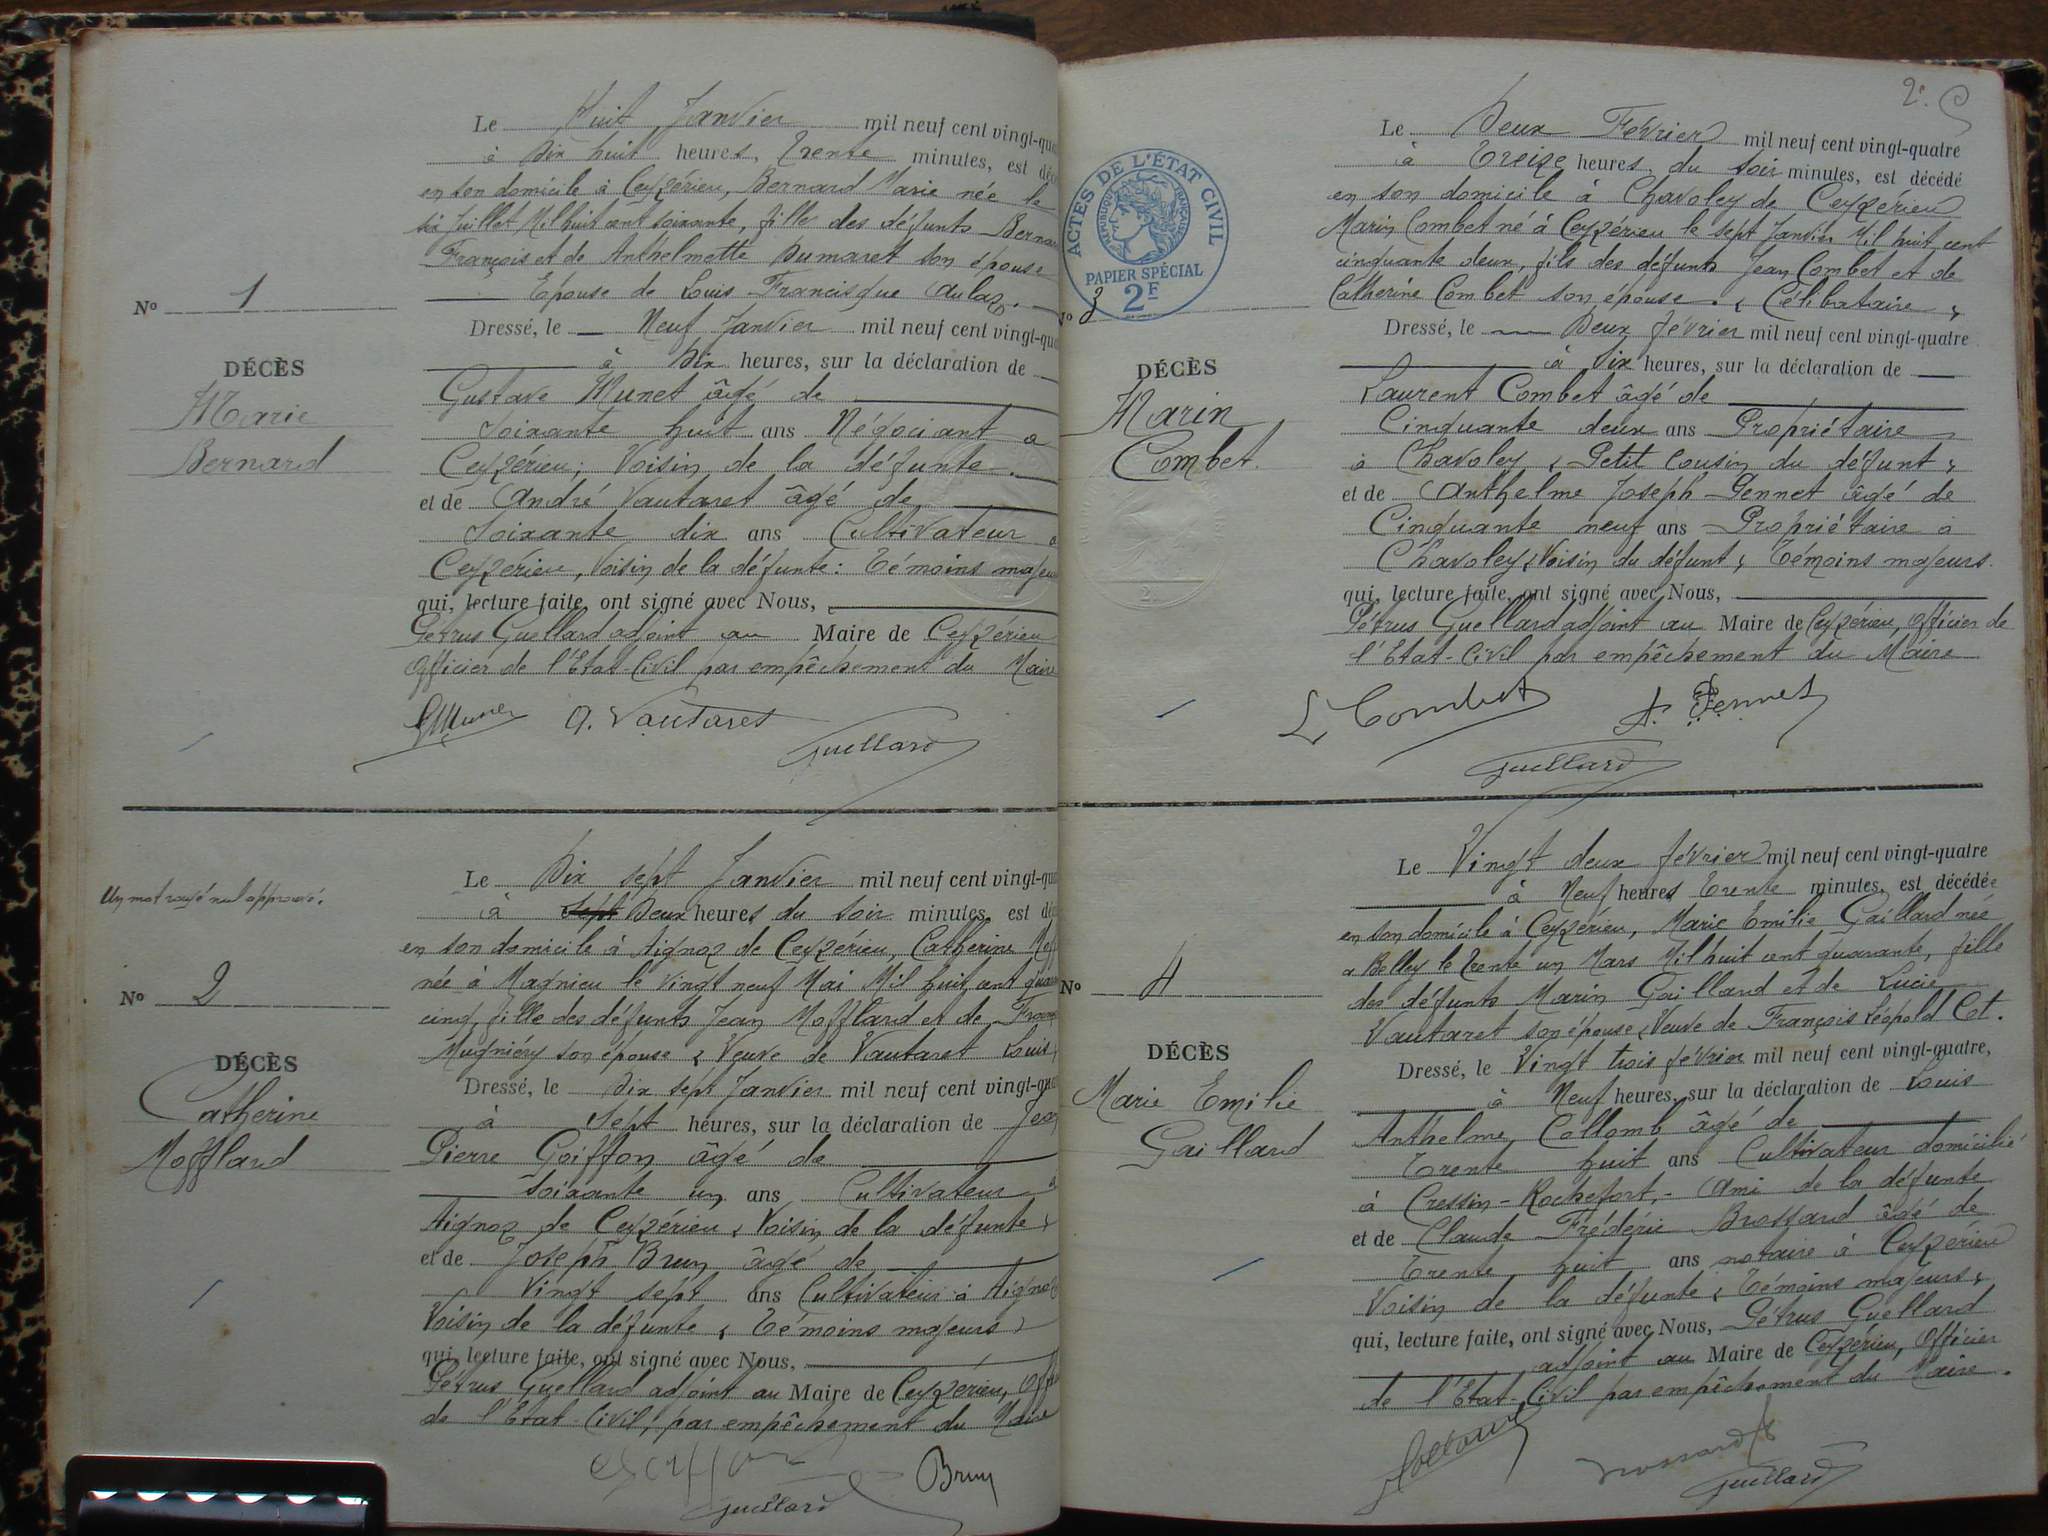 Le Huit Janvier mil neuf cent vingt-qua
à Dix huit heures, Trente minutes, est déc
en son domicile à Ceyzérieu, Bernard Marie née le
six Juillet Mil huit cent soixante, fille des défunts Berna
François et de Anthelmette Dumaret son épouse
Epouse de Louis Francisque Aulaz.
Nº 1
Dressé, le Neuf Janvier mil neuf cent vingt-qua
à Dix heures, sur la déclaration de
DÉCÈS
Marie
Bernard
Gustave Munet âgé de
Soixante huit ans Négociant à
Ceyzérieu; Voisin de la défunte.
et de André Vautaret âgé de
Soixante dix ans Cultivateur à
Ceyzérieu, Voisin de la défunte: Témoins majeu
qui, lecture faite, ont signé avec Nous,
Pétrus Guellard adjoint au Maire de Ceyzérieu
Officier de l'Etat-Civil par empêchement du Maire
GMunet A. Vautaret
Guellard
Le Dix sept Janvier mil neuf cent vingt-qua
Un mot rayé nul approuvé.
à Sept Deux heures du soir minutes, est déc
en son domicile à Aignoz de Ceyzérieu, Catherine Moff
née à Magnieu le vingt neuf Mai Mil huit cent quara
cinq, fille des défunts Jean Moffland et de Fran
Mugniéry son épouse, Veuve de Vautaret Louis,
Nº 2
Dressé, le Dix sept Janvier mil neuf cent vingt-qua
à Sept heures, sur la déclaration de Jean
DÉCÈS
Catherine
Moffland
Pierre Goiffon âgé de
Soixante un ans Cultivateur à
Aignoz de Ceyzérieu, Voisin de la défunte,
et de Joseph Brun âgé de
Vingt sept ans Cultivateur à Aignoz
Voisin de la défunte, Témoins majeurs
qui, lecture faite, ont signé avec Nous,
Pétrus Guellard adjoint au Maire de Ceyzérieu, Off
de l'Etat-Civil, par empêchement du Maire
Goiffon Brun
Guellard
2.
ACTES DE L'ÉTAT CIVIL
RÉPUBLIQUE FRANÇAISE
PAPIER SPÉCIAL
2F
Le Deux Février mil neuf cent vingt-quatre
à Treize heures, du soir minutes, est décédé
en son domicile à Chavoley de Ceyzerieu
Marin Combet né à Ceyzérieu le sept Janvier Mil huit cent
cinquante deux, fils des défunts Jean Combet et de
Catherine Combet son épouse. Célibataire,
Nº 3
Dressé, le Deux février mil neuf cent vingt-quatre
à dix heures, sur la déclaration de
DÉCÈS
Marin
Combet.
Laurent Combet âgé de
Cinquante deux ans Propriétaire
à Chavoley, Petit Cousin du défunt,
et de Anthelme Joseph Pennet âgé de
Cinquante neuf ans Propriétaire à
Chavoley, Voisin du défunt, Témoins majeurs.
qui, lecture faite, ont signé avec Nous,
Pétrus Guellard adjoint au Maire de Ceyzérieu, Officier de
l'Etat-Civil par empêchement du Maire
L Combet A. Pennet
Guellard
Le Vingt deux février mil neuf cent vingt-quatre
à Neuf heures Trente minutes, est décédée
en son domicile à Ceyzérieu, Marie Emilie Gaillard née
à Belley le Trente un Mars Mil huit cent quarante, fille
des défunts Marin Gaillard et de Lucie
Vautaret son épouse, Veuve de François Léopold Cot.
Nº 4
Dressé, le Vingt trois février mil neuf cent vingt-quatre,
à Neuf heures, sur la déclaration de Louis
DÉCÈS
Marie Emilie
Gaillard
Anthelme Collomb âgé de
Trente huit ans Cultivateur domicilié
à Cressin-Rochefort, - Ami de la défunte
et de Claude Frédéric Brossard âgé de
Trente huit ans notaire à Ceyzérieu
Voisin de la défunte, Témoins majeurs,
qui, lecture faite, ont signé avec Nous, Pétrus Guellard
adjoint au Maire de Ceyzérieu, Officier
de l'Etat-Civil par empêchement du Maire.
Collomb Brossard
Guellard